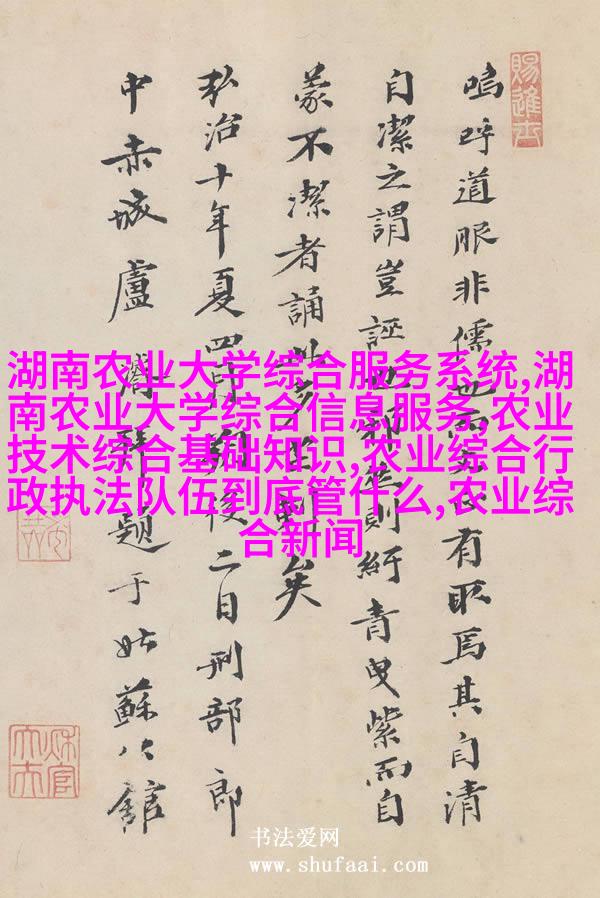 賜進士
嗚呼道服非儒也而以有取焉其自清
自潔之謂豈誣也則紆青曳紫而自
蒙不潔者誦此矣
弘治十年夏四月後二日刑部郎
中赤城盧濬拜題于姑蘇公館
秋官大夫
湖南农业大学综合服务系统,湖
南农业大学综合信息服务,农业
技术综合基础知识,农业综合行
政执法队伍到底管什么,农业综
合新闻
书法爱网
www.shufaai.com